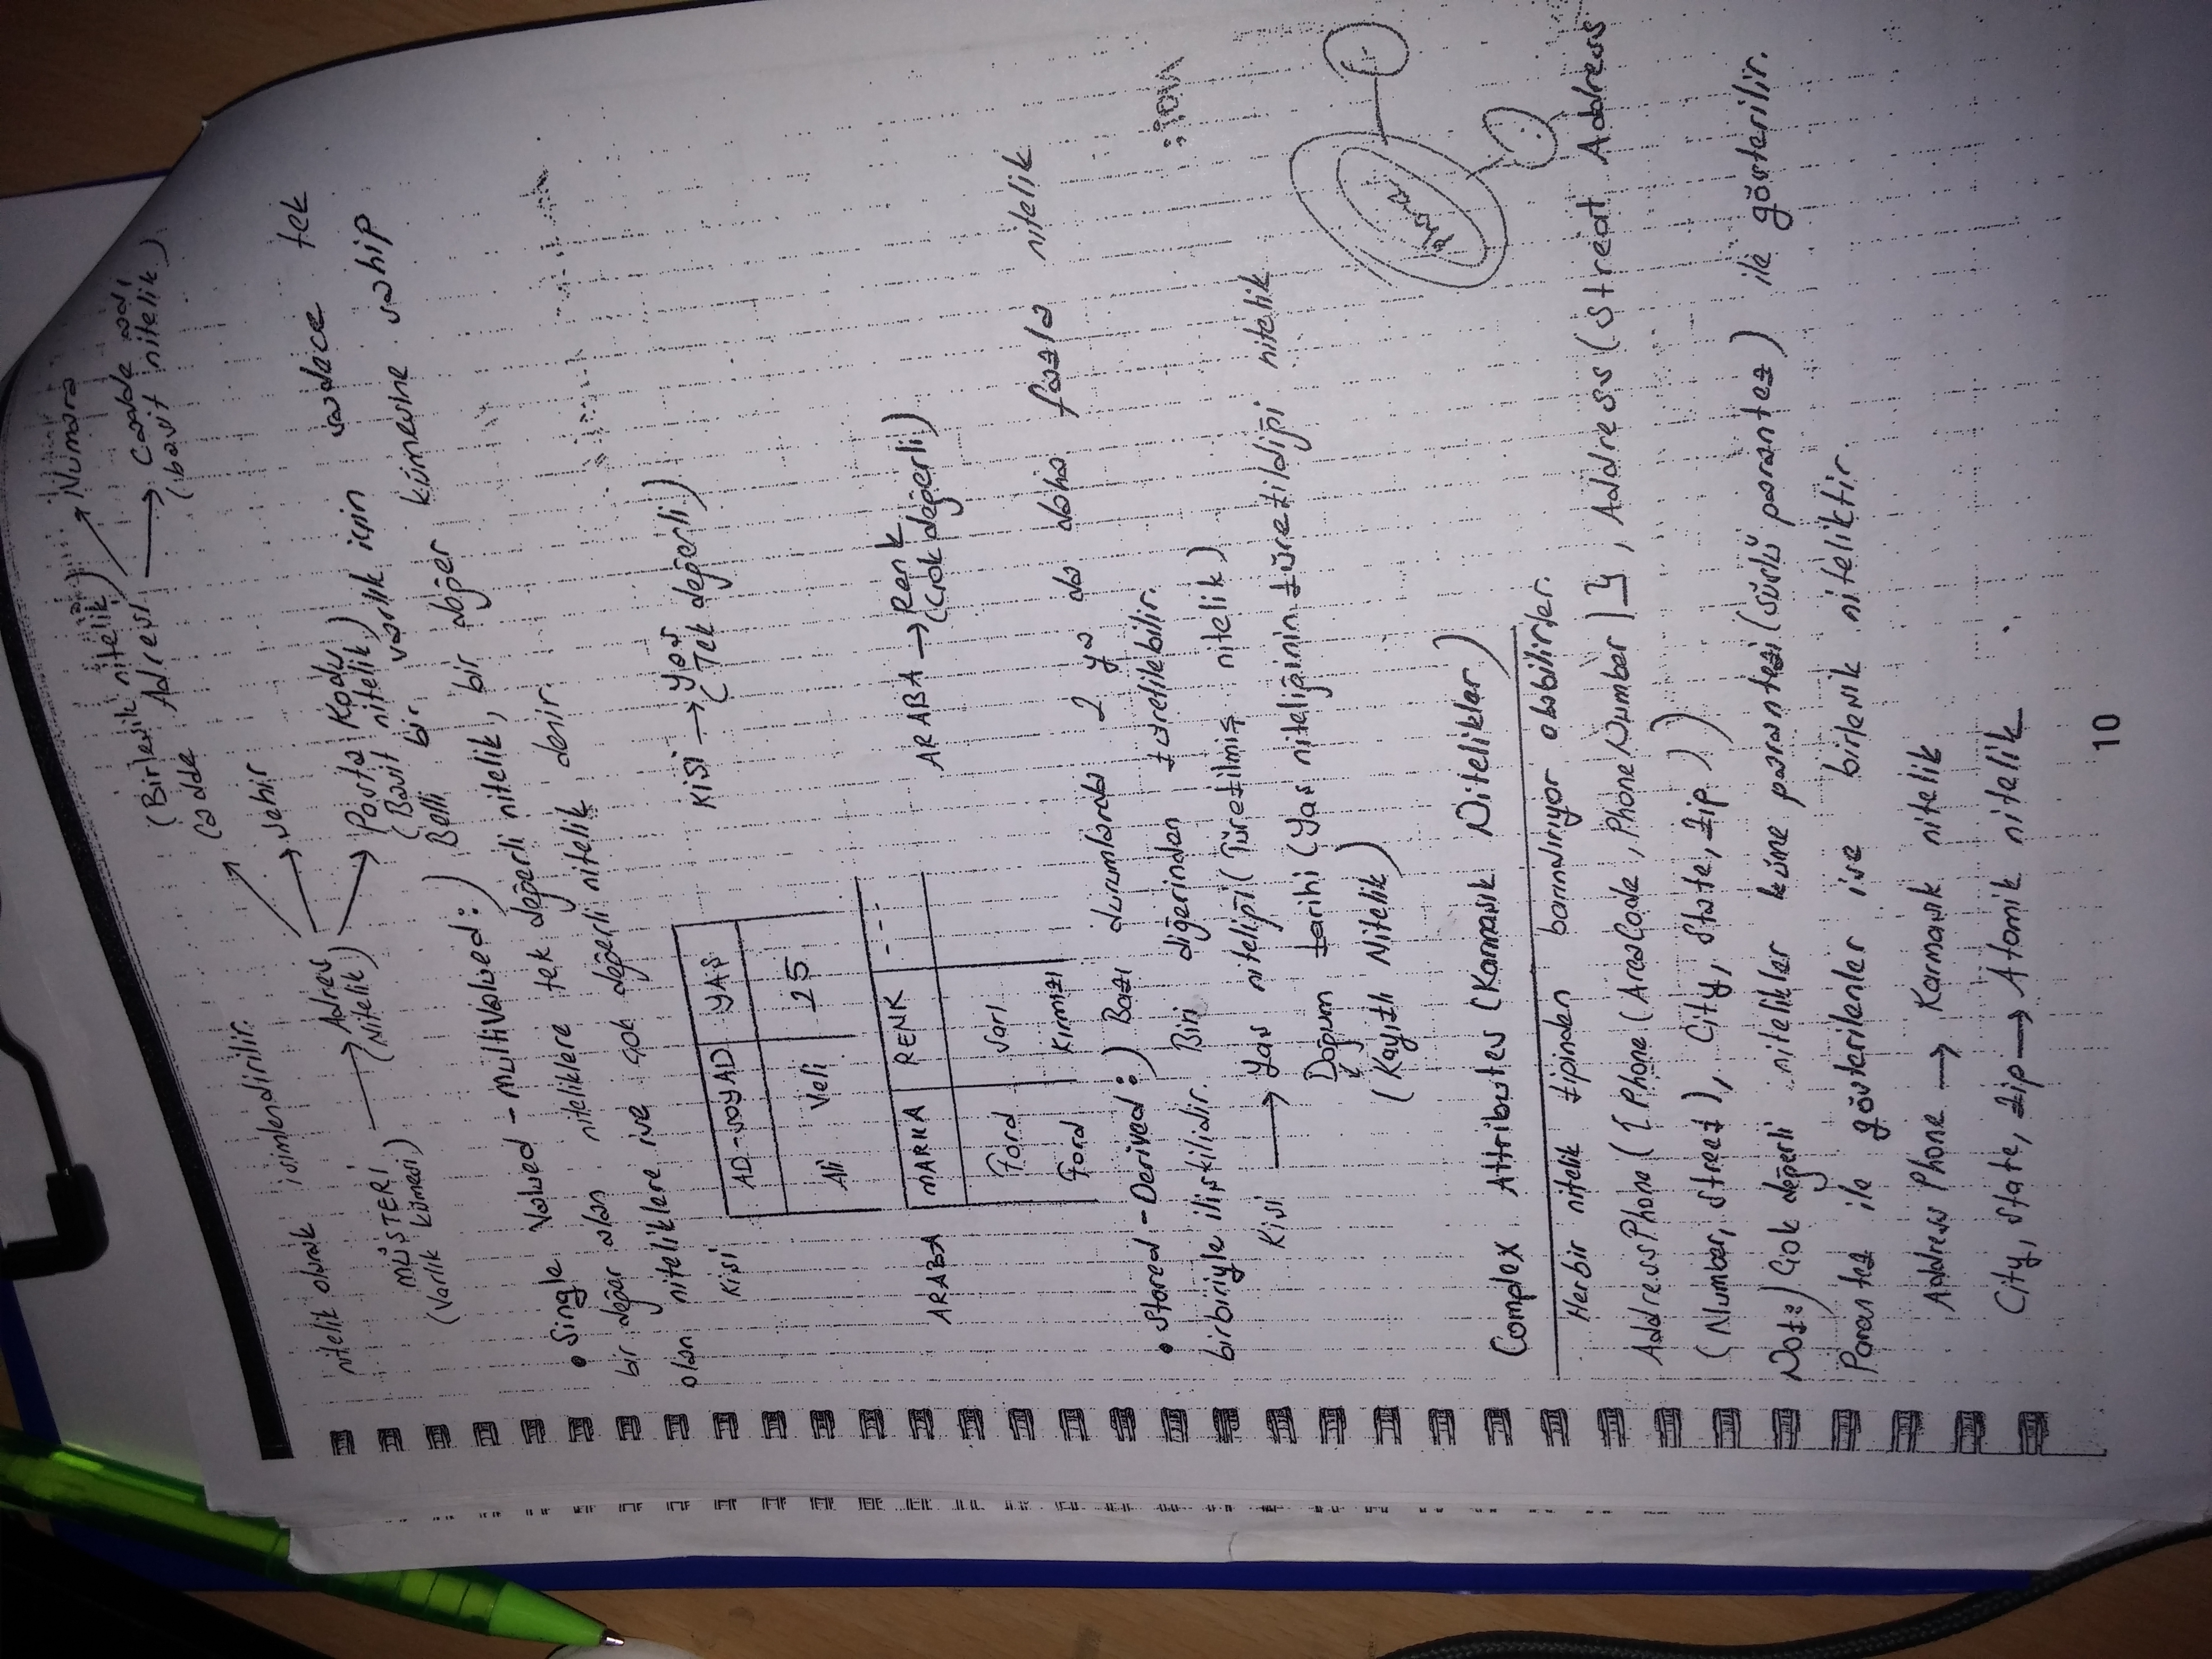 nitelik olarak isimlendirilir.
(Birleşik nitelik)
MÜŞTERİ → Adres
(Varlık kümesi) (Nitelik)
Cadde Adresi → Numara
→ Cadde adı
(basit nitelik)
→ Şehir
→ Posta Kodu
(Basit nitelik)
• Single Valued - Multi Valued:) Belli bir varlık için sadece tek
bir değer alan niteliklere tek değerli nitelik, bir değer kümesine sahip
olan niteliklere ise çok değerli nitelik denir.
Kişi
AD-SOYAD YAŞ
Ali Veli 25
KİŞİ → Yaş
(Tek değerli)
ARABA
MARKA RENK ---
Ford Sarı
Ford Kırmızı
ARABA → Renk
(Çok değerli)
• Stored - Derived:) Bazı durumlarda 2 ya da daha fazla nitelik
birbiriyle ilişkilidir. Biri diğerinden türetilebilir.
Kişi → Yaş niteliği (Türetilmiş nitelik)
Doğum tarihi (Yaş niteliğinin türetildiği nitelik
(Kayıtlı Nitelik)
Complex Attributes (Karmaşık Nitelikler)
Phone
Herbir nitelik tipinden barındırıyor olabilirler.
AddressPhone ({Phone (AreaCode, PhoneNumber)}, Address (Street Address
(Number, Street), City, State, Zip))
Not:) Çok değerli nitelikler küme parantezi (süslü parantez) ile gösterilir.
Parantez ile gösterilenler ise birleşik niteliktir.
Address Phone → Karmaşık nitelik
City, State, Zip → Atomik nitelik
10